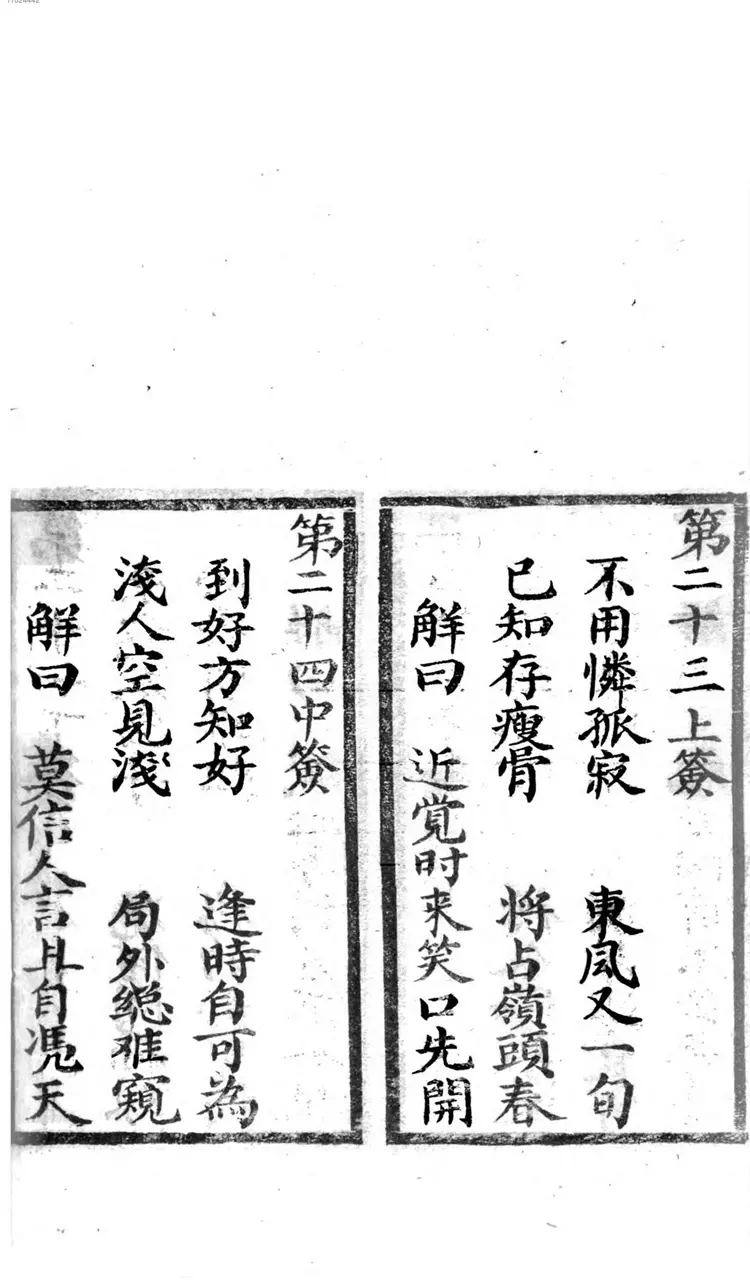 第二十三上簽
不用憐孤寂 東風又一旬
已知存瘦骨 将占嶺頭春
解曰 近覚时来笑口先開
第二十四中簽
到好方知好 逢時自可為
淺人空見淺 局外縂难窺
解曰 莫信人言且自憑天